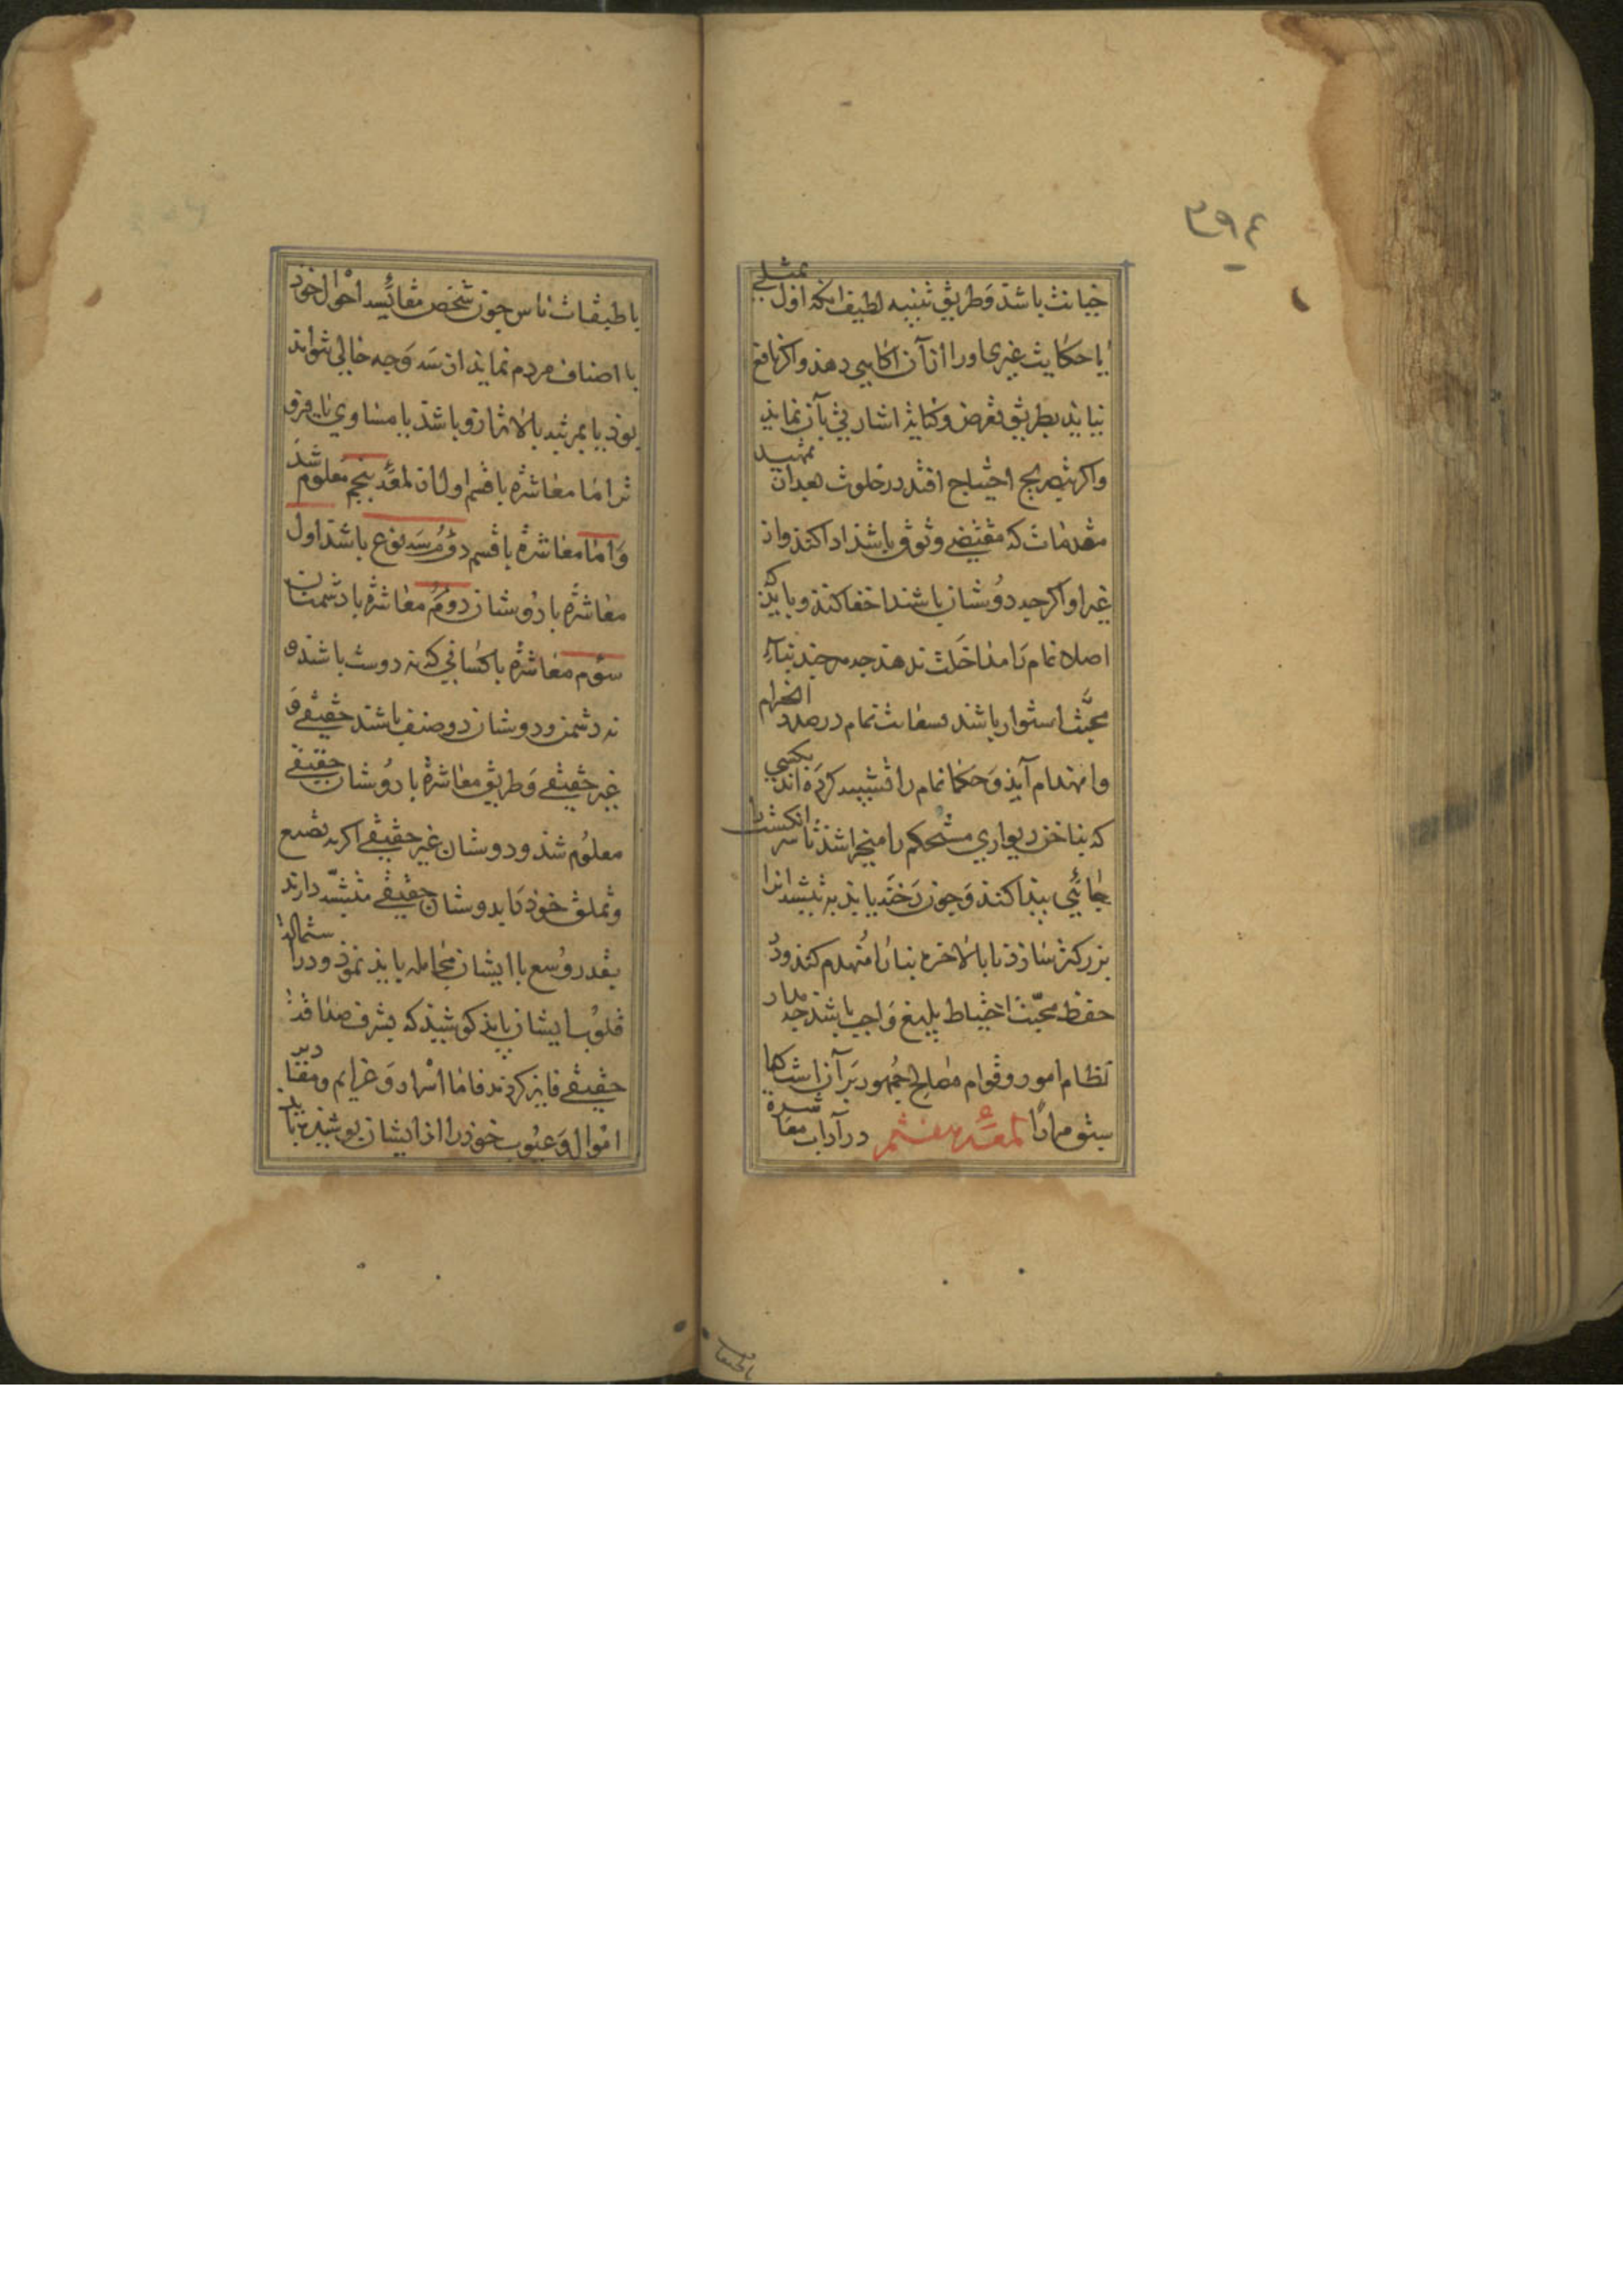 ۳۹٤
خیانت باشد وَطریق تنبیه لطیف انکه اول بمثلے
یا حکایت غیری اورا ازآن اکاهی دهد واکر نافع
نیاید بطریق تعرض وکنایة اشارتی بآن نماید
واکر بتصریح احتیاج افتد در خلوت بعدان تمهید
مقدمات که مقتضے وثوق باشد ادا کند واز
غیر او اکرچه دوستان باشند اخفا کند وباید که
اصلا نمام رَا مداخَلت ندهد چه هرچند بناءِ
محبَّت استوار باشد بسعایت نمام درصدد انخرام
وانهدام آید وَحکما نمام را تشبیه کردَه اند بکسی
که بناخن دیواری مستحکم را میخراشد تا سر انکشت را
جائی پیدا کند وَچون رَخنَه یابد به تیشه انرا
بزرکتر سازد تا بالاخره بنا رَا مُنهدم کند ودر
حفظ محبّت احتیاط بلیغ وَاجب باشد چه مدار
نظام امور وقوام مصَالح جُمهور بَرآن است کما
ستو مرارًا لمعَهٔ هفتم در آداب معاشرة
باطبقات
با طبقات ناس چون شخص مقائیسه احوال خود
با اصناف مردم نماید از سَه وَجه خالی نتواند
بود یا بمرتبه بالاتر ازو باشد یا مساوی یا فروتر
تر امّا معاشرة با قسم اول از لمعَهٔ پنجم معلوم شد
وَامّا معاشرة با قسم دوُمُ سَه نوع باشد اول
معاشرة با دُوستان دوُمُ معاشرة با دشمنان
سوُم معاشرة با کسانی که نه دوست باشند و
نه دشمن ودوستان دو صنف باشند حقیقے وَ
غیر حقیقے وَطریق معاشرة با دوُستان حقیقے
معلوُم شد ودوستان غیر حقیقے اکر به تصنع
وتملق خود رَا بدوستان حقیقے متشبّه دارند
بقدر وُسع با ایشان مجامله باید نمود ودر استمالة
قلوُب ایشان باید کوشید که بشرف صداقة
حقیقے فایز کردند فامّا اسرار وَعزایم ومقادیر
اموال وَعیُوب خود را از ایشان پوشیده باید